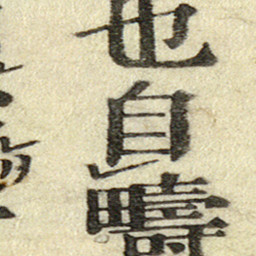 也自疇